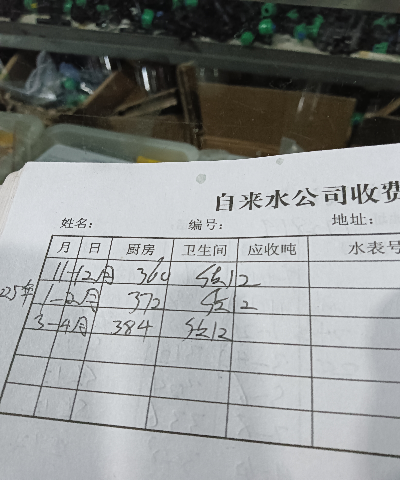 自来水公司收费
姓名: 编号: 地址:
月 日 厨房 卫生间 应收吨 水表号
11-12月 360 12
225年 1-2月 372 12
3-4月 384 12